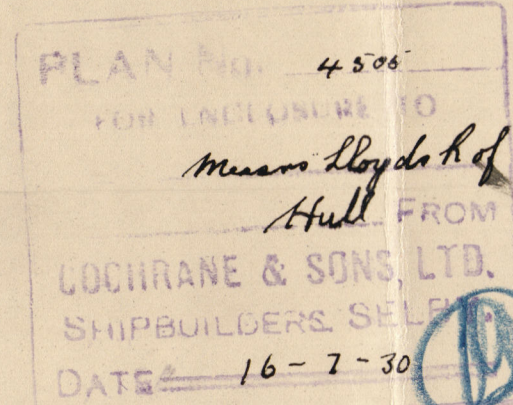 PLAN No. 4505
FOR ENCLOSURE TO
Messrs Lloyds R of
Hull FROM
COCHRANE & SONS, LTD.
SHIPBUILDERS. SELBY.
DATE 16-7-30